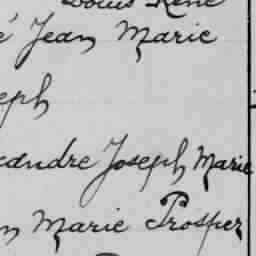 Louis René
é Jean Marie
eph
xandre Joseph Marie
n Marie Prosper